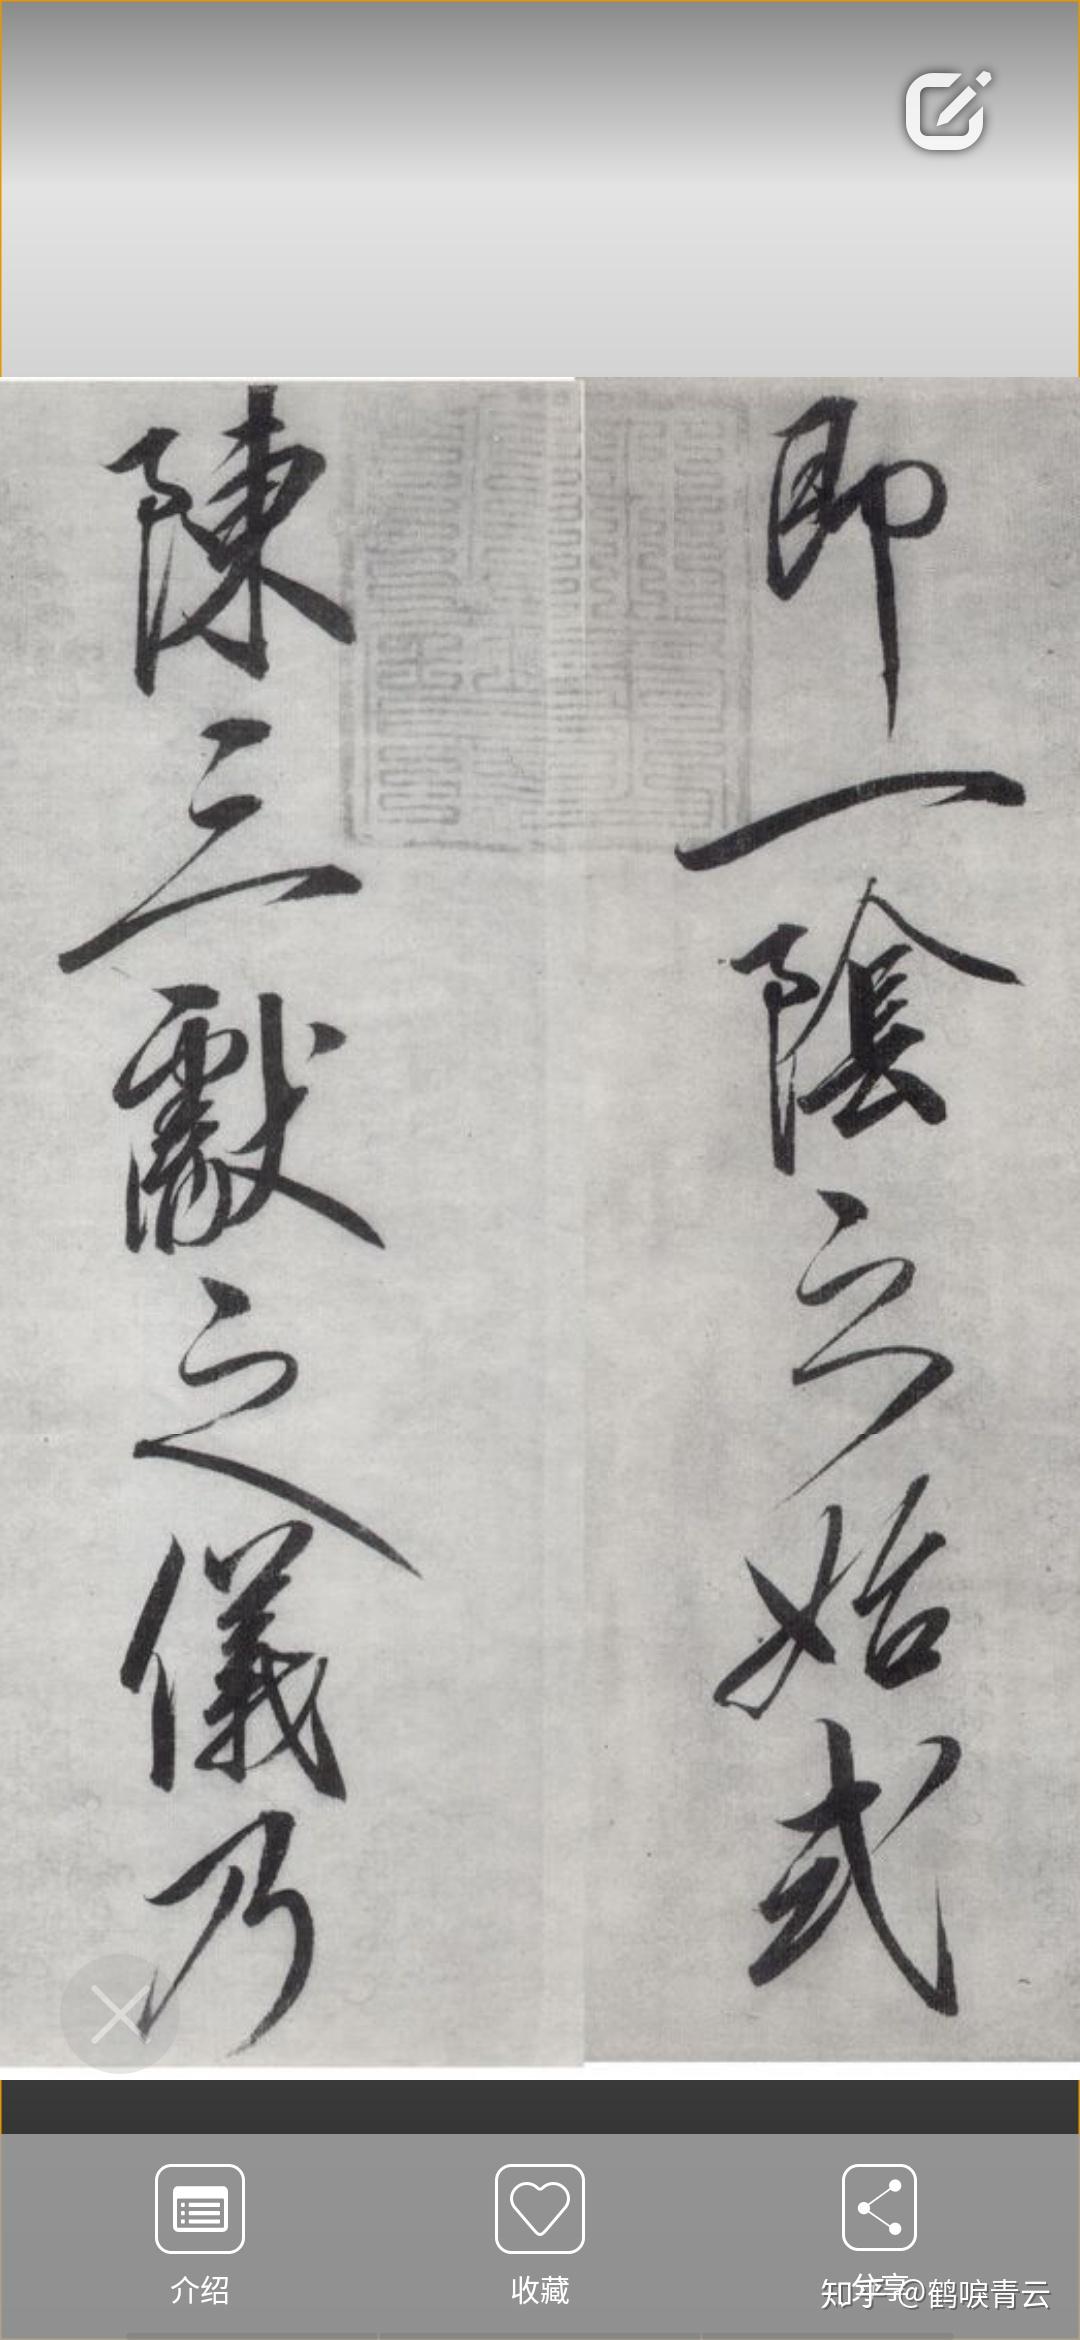 即一陰之始式
陳三獻之儀乃
介绍
收藏
分享
知乎 @鹤唳青云